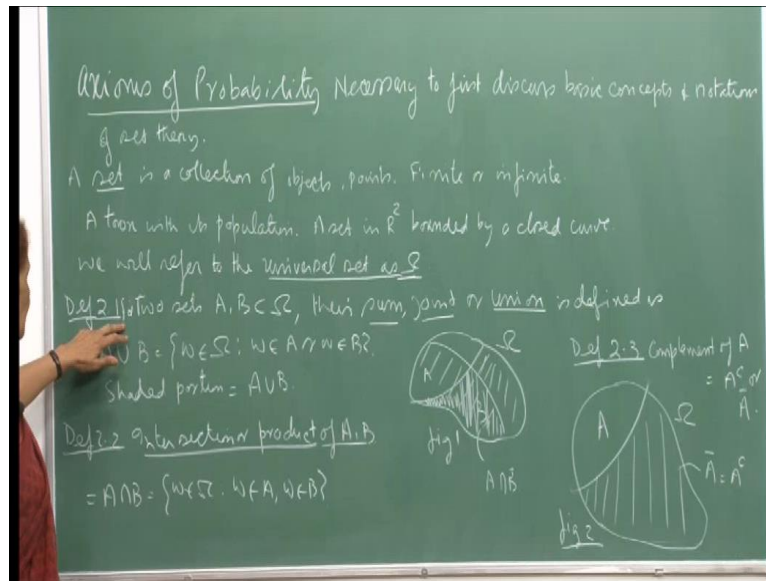 Axioms of Probability Necessary to first discuss basic concepts & notations
of set theory.
A set is a collection of objects, points. Finite or infinite.
A town with its population. A set in R² bounded by a closed curve.
We will refer to the universal set as Ω
Def 2.1 For two sets A, B ⊂ Ω, their sum, joint or union is defined as
∪ B = {w ∈ Ω : w ∈ A or w ∈ B}.
Shaded portion = A ∪ B.
Def 2.2 Intersection or product of A, B
= A ∩ B = {w ∈ Ω . w ∈ A, w ∈ B}
A
Ω
B
fig 1
A ∩ B
Def 2.3 Complement of A
= Aᶜ or
Ā.
A
Ω
Ā = Aᶜ
fig 2